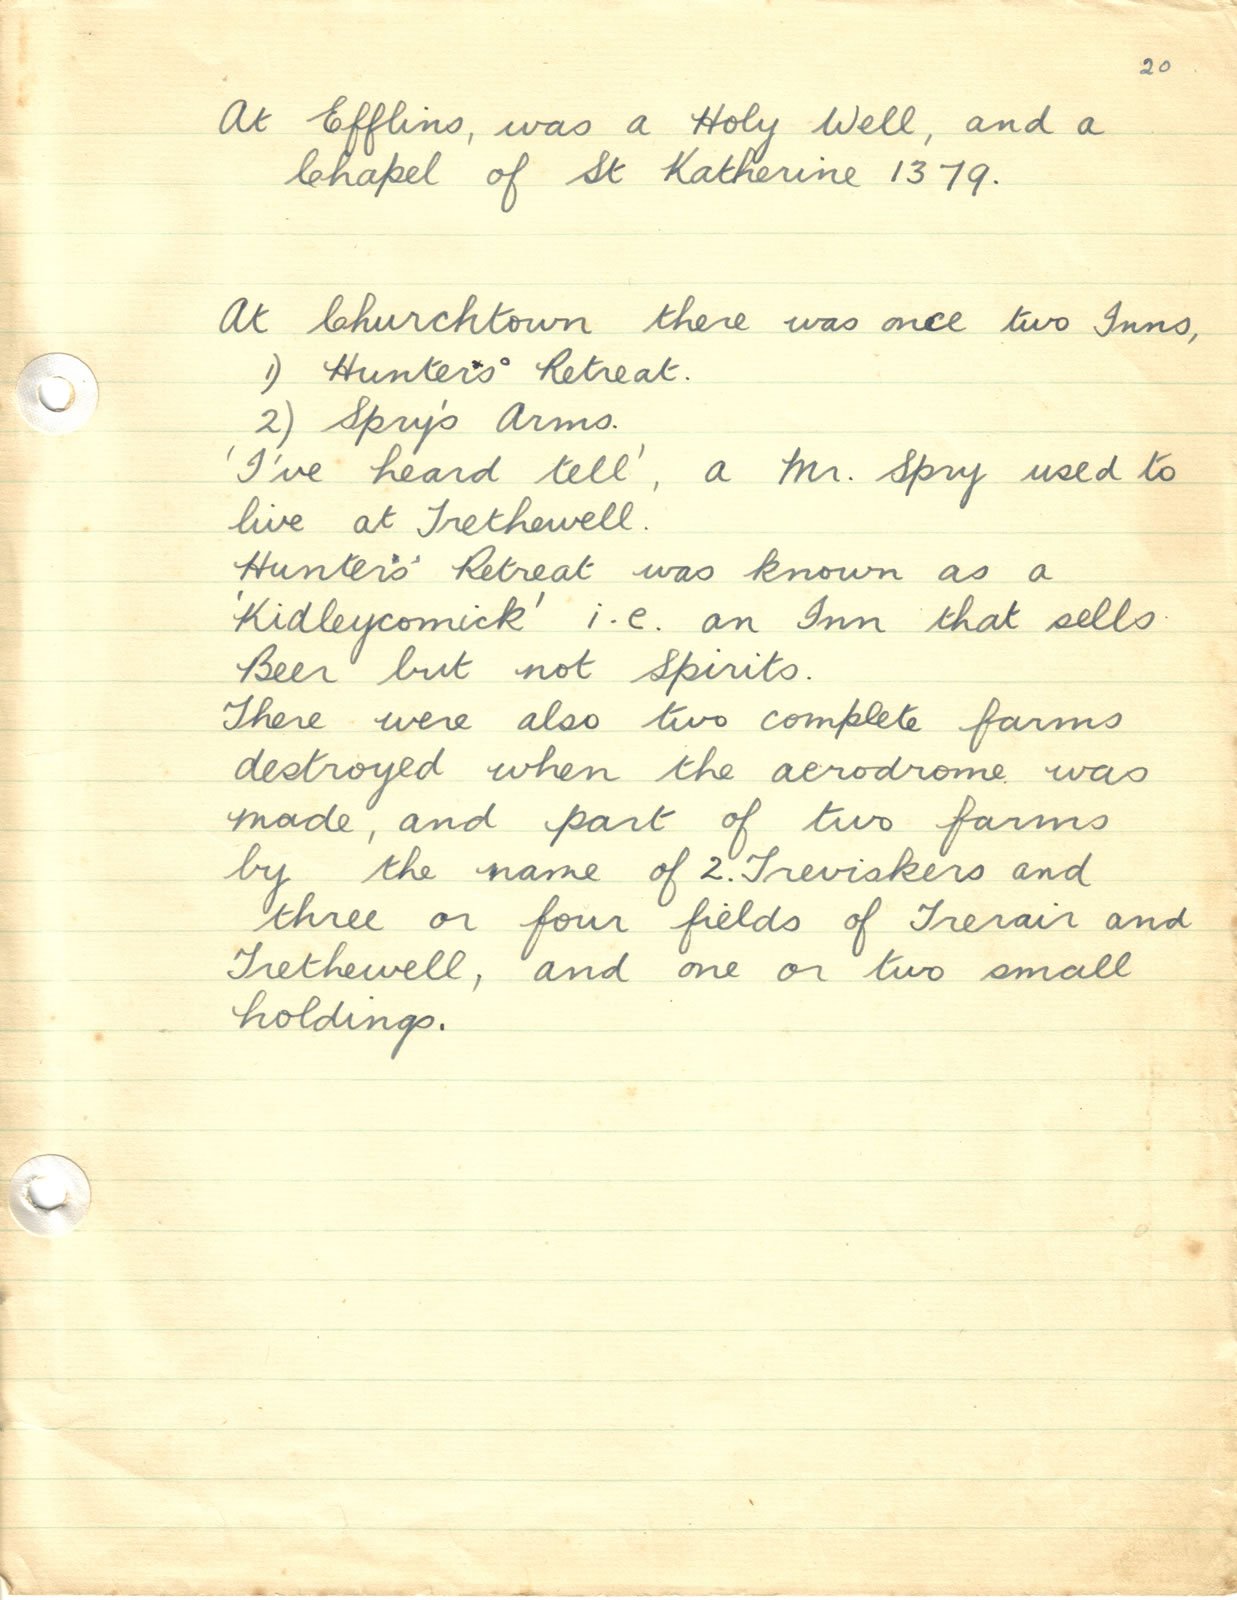 20
At Efflins, was a Holy Well, and a
Chapel of St Katherine 1379.
At Churchtown there was once two Inns,
1) Hunter's Retreat.
2) Spry's Arms.
'I've heard tell', a Mr. Spry used to
live at Trethewell.
Hunter's Retreat was known as a
'Kidleycomick' i.e. an Inn that sells
Beer but not Spirits.
There were also two complete farms
destroyed when the aerodrome was
made, and part of two farms
by the name of 2. Treviskers and
three or four fields of Trerair and
Trethewell, and one or two small
holdings.